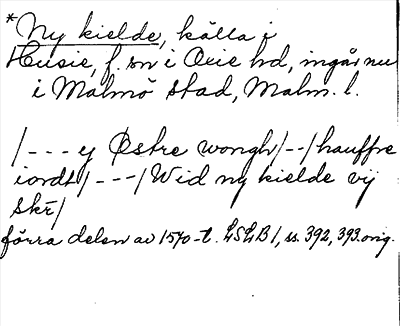 *Ny kielde, källa i
Husie, f. sn i Oxie hd, ingår nu
i Malmö stad, Malm. l.
/--- y Østre wongh/--/hauffre
iordt/---/Wid ny kielde vij
skr/
förra delen av 1570-t. LSLB1, ss. 392, 393. orig.